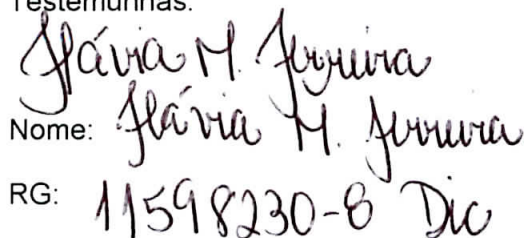 Testemunhas:
Flávia M. Ferreira
Nome: Flávia M. Ferreira
RG: 11598230-8 Dic